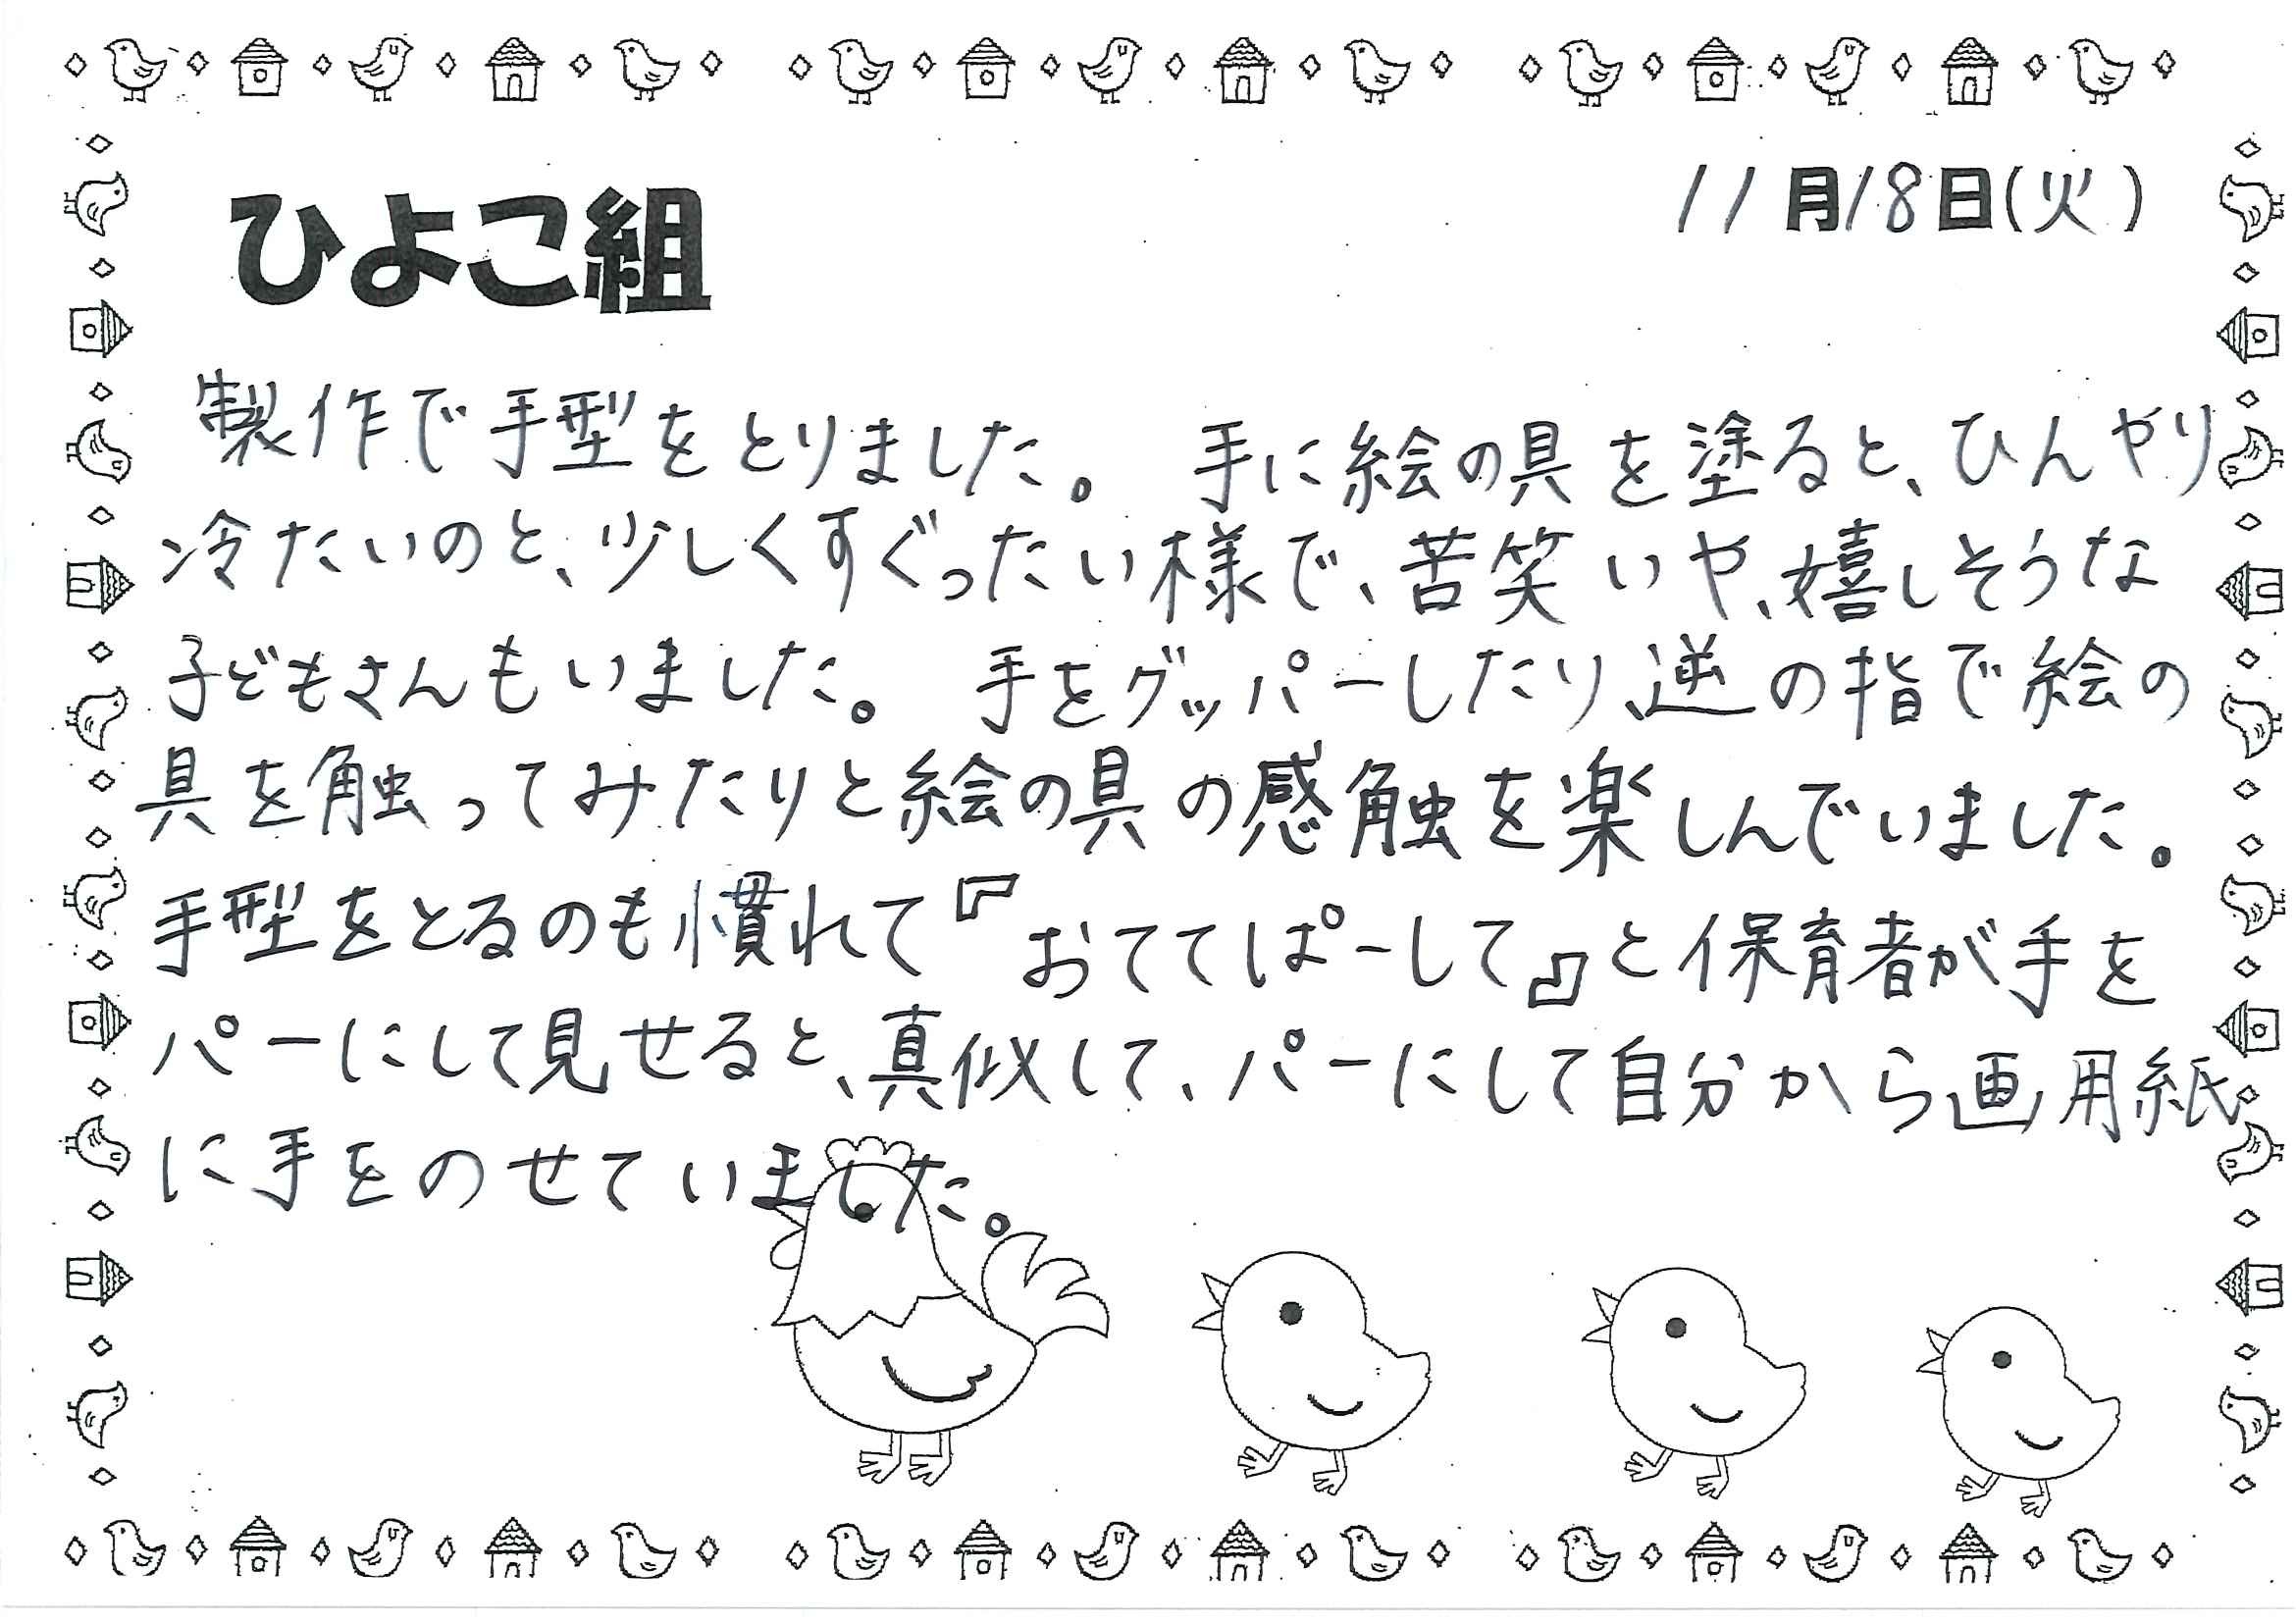 11月18日(火)
ひよこ組
製作で手型をとりました。 手に絵の具を塗ると、ひんやり
冷たいのと、少しくすぐったい様で、苦笑いや、嬉しそうな
子どもさんもいました。 手をグッパーしたり、逆の指で絵の
具を触ってみたりと絵の具の感触を楽しんでいました。
手型をとるのも慣れて『おててぱーして』と保育者が手を
パーにして見せると、真似して、パーにして自分から画用紙
に手をのせていました。